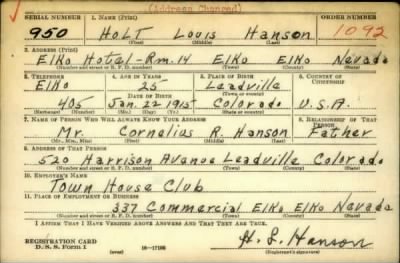 (Address Changed)
SERIAL NUMBER 1. NAME (Print) ORDER NUMBER
950 HOLT Louis Hanson 1092
(First) (Middle) (Last)
2. ADDRESS (Print)
Elko Hotel-Rm.14 Elko Elko Nevada
(Number and street or R. F. D. number) (Town) (County) (State)
3. TELEPHONE 4. AGE IN YEARS 5. PLACE OF BIRTH 6. COUNTRY OF CITIZENSHIP
Elko 25 Leadville
DATE OF BIRTH (Town or county)
405 Jan. 22 1915 Colorado U.S.A.
(Exchange) (Number) (Mo.) (Day) (Yr.) (State or country)
7. NAME OF PERSON WHO WILL ALWAYS KNOW YOUR ADDRESS 8. RELATIONSHIP OF THAT PERSON
Mr. Cornelius R. Hanson Father
(Mr., Mrs., Miss) (First) (Middle) (Last)
9. ADDRESS OF THAT PERSON
520 Harrison Avenue Leadville Colorado
(Number and street or R. F. D. number) (Town) (County) (State)
10. EMPLOYER'S NAME
Town House Club
11. PLACE OF EMPLOYMENT OR BUSINESS
337 Commercial Elko Elko Nevada
(Number and street or R. F. D. number) (Town) (County) (State)
I AFFIRM THAT I HAVE VERIFIED ABOVE ANSWERS AND THAT THEY ARE TRUE.
REGISTRATION CARD H. L. Hanson
D. S. S. Form 1 (over) (Registrant's signature)